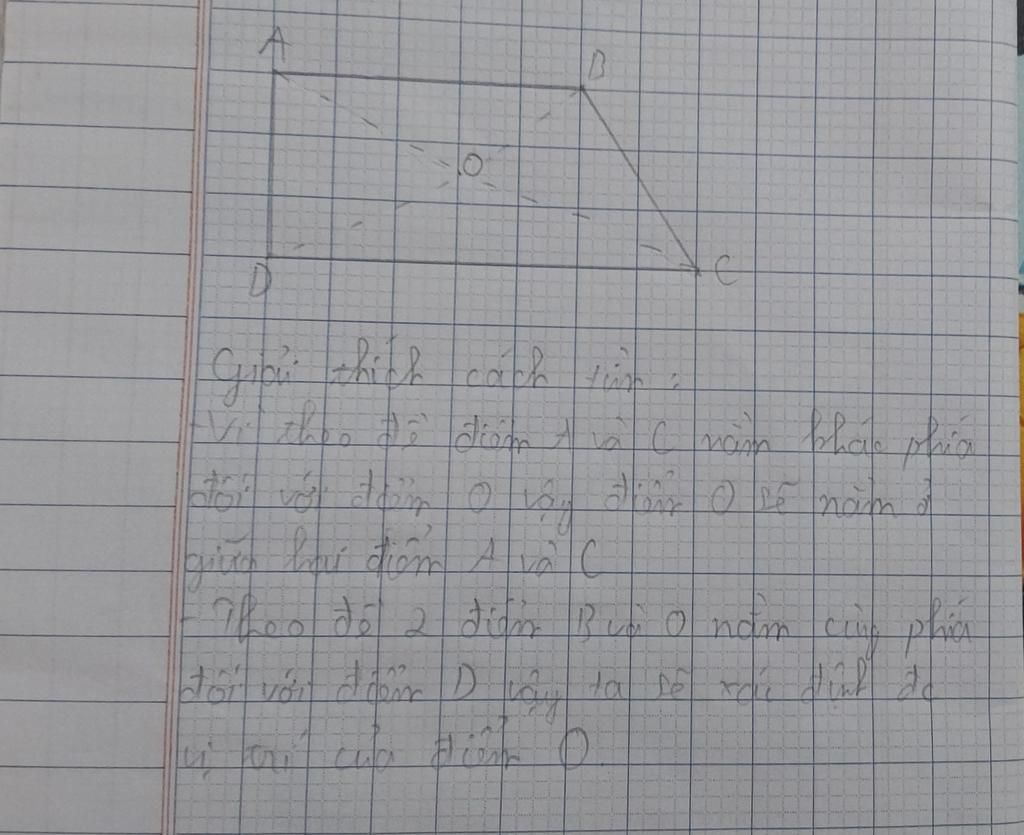 A
B
O
D
C
Giải thích cách tìm :
- Vì theo đề điểm A và C nằm khác phía
đối với điểm O vậy điểm O sẽ nằm ở
giữa hai điểm A và C
- Theo đề 2 điểm B và O nằm cùng phía
đối với điểm D vậy ta sẽ xác định đc
vị trí của điểm O.